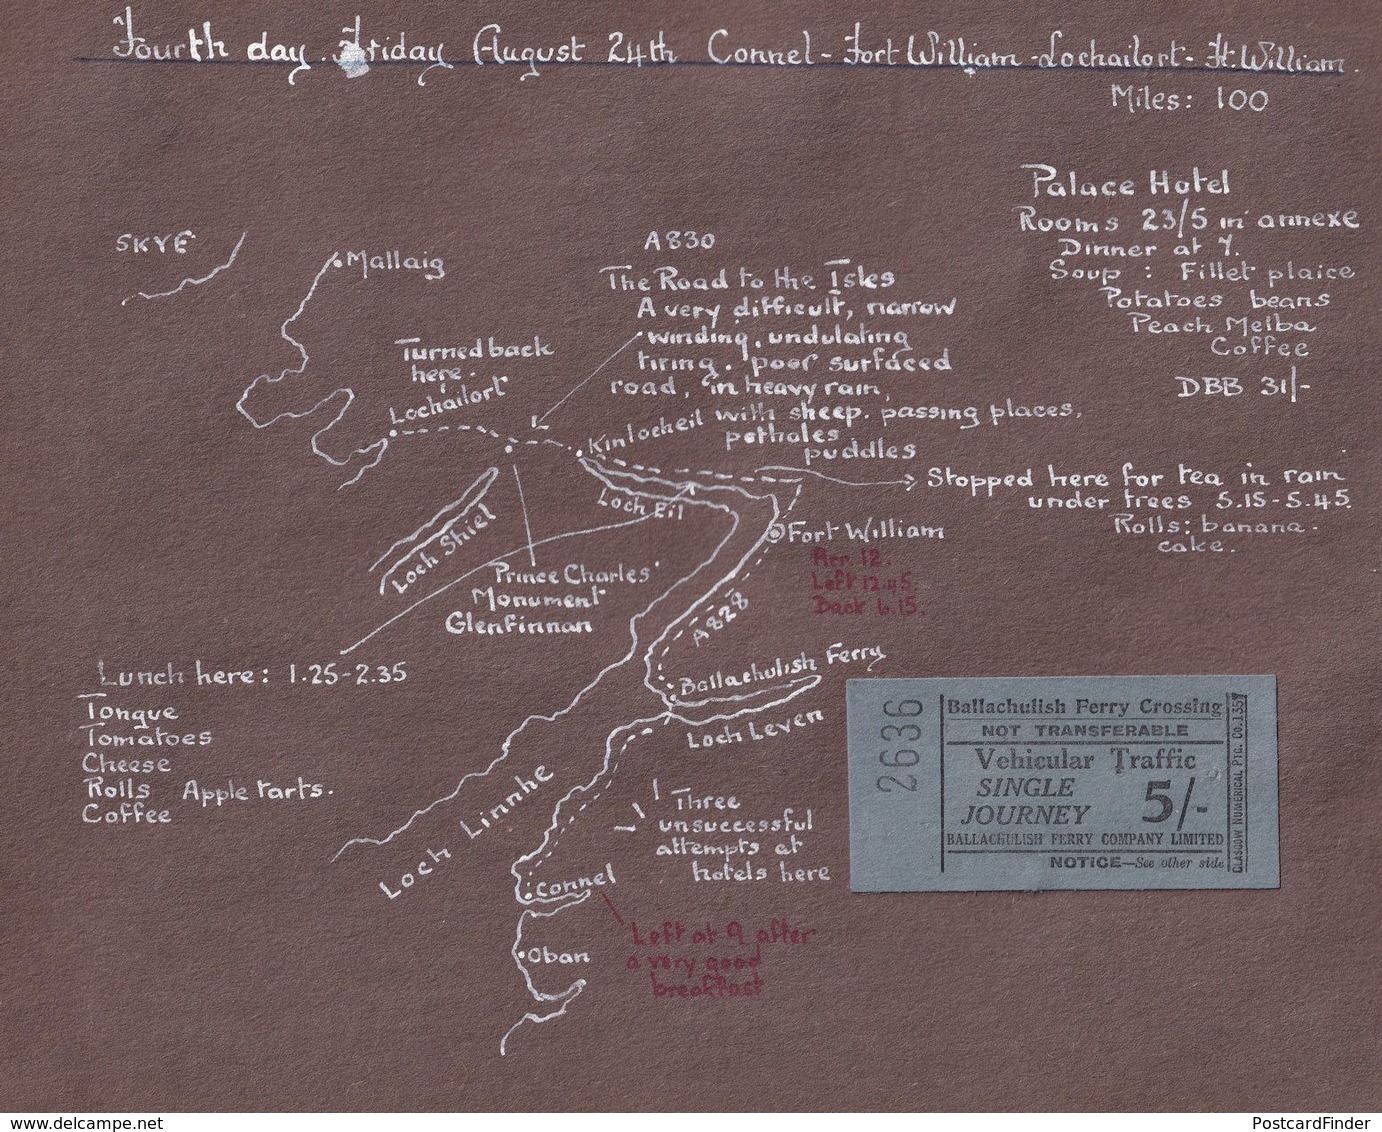 Fourth day. Friday August 24th Connel - Fort William - Lochailort - Ft. William.
Miles: 100
Palace Hotel
Rooms 23/5 in annexe
Dinner at 7.
Soup : Fillet plaice
Potatoes beans
Peach Melba
Coffee
DBB 31/-
SKYE
Mallaig
A830
The Road to the Isles
A very difficult, narrow
winding, undulating
tiring, poor surfaced
road, in heavy rain,
with sheep. passing places,
potholes
puddles
Turned back
here.
Lochailort
Kinlocheil
Stopped here for tea in rain
under trees 5.15-5.45.
Rolls: banana.
cake.
Loch Eil
Loch Shiel
Fort William
Arr. 12.
Left 12.45.
Back 6.15.
Prince Charles'
Monument
Glenfinnan
A828
Ballachulish Ferry
Loch Leven
Lunch here: 1.25-2.35
Tongue
Tomatoes
Cheese
Rolls Apple tarts.
Coffee
Loch Linnhe
Three
unsuccessful
attempts at
hotels here
Connel
Left at 9 after
a very good
breakfast
Oban
2636
Ballachulish Ferry Crossing
NOT TRANSFERABLE
Vehicular Traffic
SINGLE
JOURNEY 5/-
BALLACHULISH FERRY COMPANY LIMITED
NOTICE—See other side
GLASGOW NUMERICAL PTG. CO. 1557
www.delcampe.net
PostcardFinder